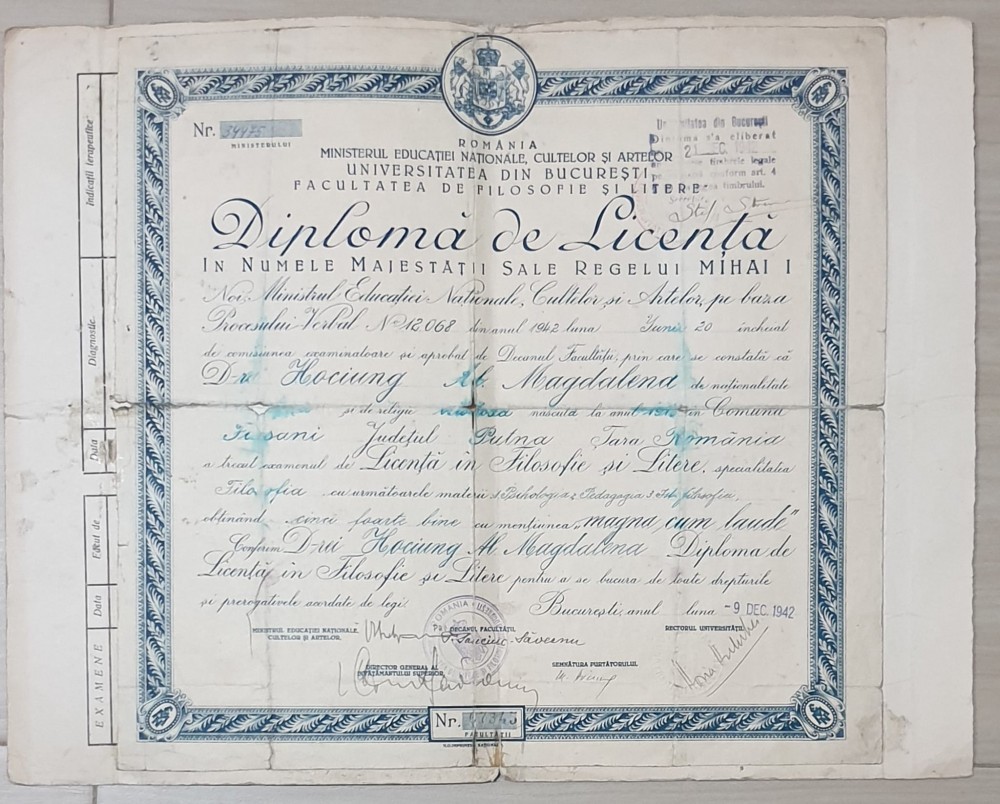 Nr. 34475
MINISTERULUI
ROMÂNIA
MINISTERUL EDUCAȚIEI NAȚIONALE, CULTELOR ȘI ARTELOR
UNIVERSITATEA DIN BUCUREȘTI
FACULTATEA DE FILOSOFIE ȘI LITERE
din București
s'a eliberat
21 DEC.
timbrele legale
conform art. 4
timbrului.
Diplomă de Licență
IN NUMELE MAJESTĂȚII SALE REGELUI MIHAI I
Noi, Ministrul Educației Naționale, Cultelor și Artelor, pe baza
Procesului Verbal No 12.068 din anul 1942 luna Iunie 20 încheiat
de comisiunea examinatoare și aprobat de Decanul Facultății, prin care se constată că
D-ra Hociung Al. Magdalena de naționalitate
și de religie născută la anul în Comuna
Județul Putna Țara România
a trecut examenul de Licență în Filosofie și Litere, specialitatea
Filosofia cu următoarele materii 1 Psihologia 2 Pedagogia 3 Ist. filosofiei,
obținând cinci foarte bine cu mențiunea „magna cum laude"
Conferim D-rei Hociung Al. Magdalena Diploma de
Licență în Filosofie și Litere pentru a se bucura de toate drepturile
și prerogativele acordate de legi.
București, anul luna -9 DEC. 1942
MINISTRUL EDUCAȚIEI NAȚIONALE,
CULTELOR ȘI ARTELOR,
DECANUL FACULTĂȚII
RECTORUL UNIVERSITĂȚII
ROMANIA
DIRECTOR GENERAL AL
ÎNVĂȚĂMÂNTULUI SUPERIOR
SEMNĂTURA PURTĂTORULUI
Nr. 07345
FACULTĂȚII
Indicații terapeutice
Diagnostic
Data
Făcut de
Data
EXAMENE